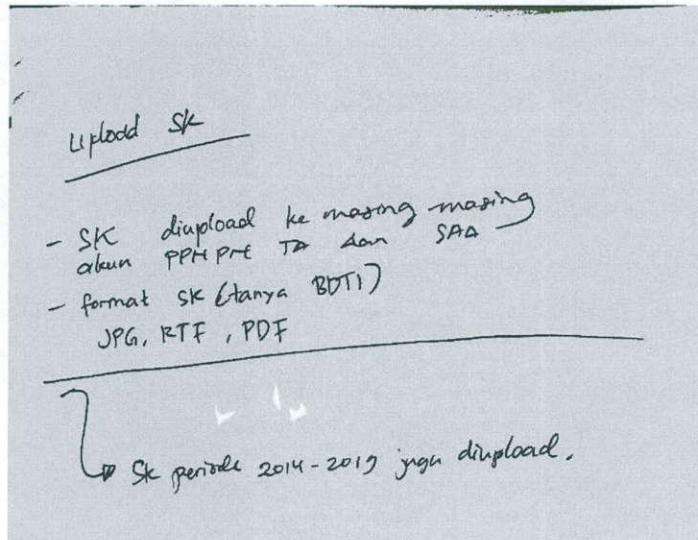 Upload SK
- SK diupload ke masing-masing
akun PPNPN TA dan SAA
- format SK (tanya BDTI)
JPG, RTF, PDF
SK periode 2014-2019 juga diupload.